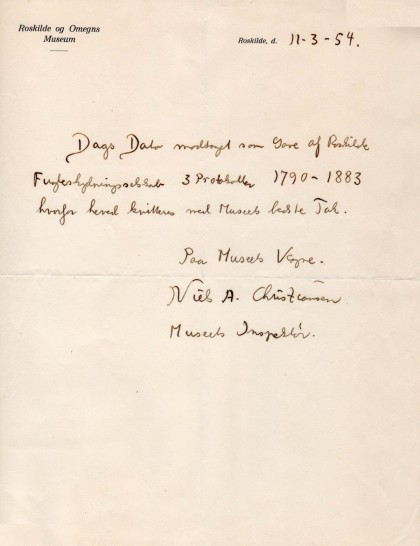 Roskilde og Omegns
Museum
Roskilde, d. 11-3-54.
Dags Dato modtaget som Gave af Roskilde
Fugleskydningsselskab 3 Protokoller 1790-1883
hvorfor herved kvitteres med Museets bedste Tak.
Paa Museets Vegne.
Niels A. Christiansen
Museets Inspektør.